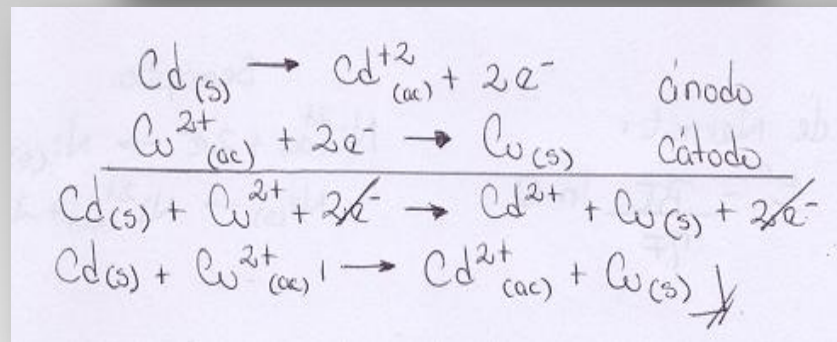 Cd(s) → Cd⁺²(ac) + 2e⁻ ánodo
Cu²⁺(ac) + 2e⁻ → Cu(s) Cátodo
Cd(s) + Cu²⁺ + 2e⁻ → Cd²⁺ + Cu(s) + 2e⁻
Cd(s) + Cu²⁺(ac) → Cd²⁺(ac) + Cu(s)